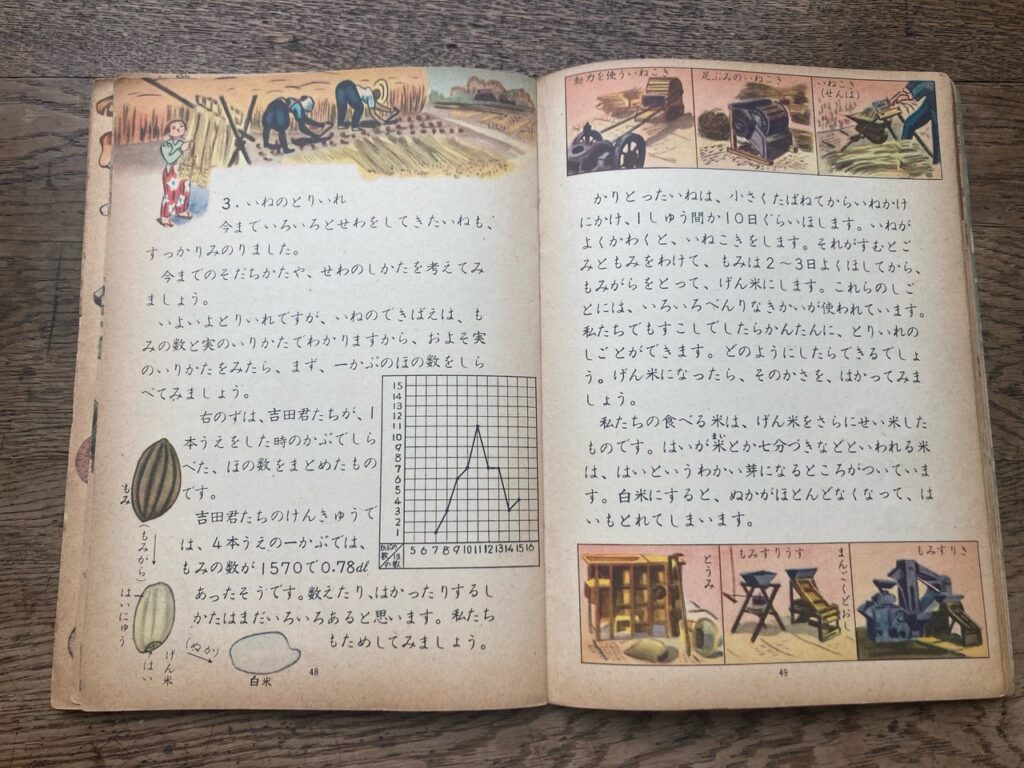 3. いねのとりいれ
今までいろいろとせわをしてきたいねも、
すっかりみのりました。
今までのそだちかたや、せわのしかたを考えてみ
ましょう。
いよいよとりいれですが、いねのできばえは、も
みの数と実のいりかたでわかりますから、およそ実
のいりかたをみたら、まず、一かぶのほの数をしら
べてみましょう。
右のずは、吉田君たちが、1
本うえをした時のかぶでしら
べた、ほの数をまとめたもの
です。
吉田君たちのけんきゅうで
は、4本うえの一かぶでは、
もみの数が1570で0.78dl
あったそうです。数えたり、はかったりするし
かたはまだいろいろあると思います。私たち
もためしてみましょう。
15
14
13
12
11
10
9
8
7
6
5
4
3
2
1
かぶの数
ほの数
5 6 7 8 9 10 11 12 13 14 15 16
もみ
(もみがら)
はいにゅう
はい
げん米
(ぬか)
白米
48
動力を使ういねこき
足ぶみのいねこき
いねこき
(せんば)
かりとったいねは、小さくたばねてからいねかけ
にかけ、1しゅう間か10日ぐらいほします。いねが
よくかわくと、いねこきをします。それがすむとご
みともみをわけて、もみは2〜3日よくほしてから、
もみがらをとって、げん米にします。これらのしご
とには、いろいろべんりなきかいが使われています。
私たちでもすこしでしたらかんたんに、とりいれの
しごとができます。どのようにしたらできるでしょ
う。げん米になったら、そのかさを、はかってみま
しょう。
私たちの食べる米は、げん米をさらにせい米した
ものです。はいが米まいとか七分づきなどといわれる米
は、はいというわかい芽になるところがついていま
す。白米にすると、ぬかがほとんどなくなって、は
いもとれてしまいます。
とうみ
もみすりうす
まんごくどおし
もみすりき
49